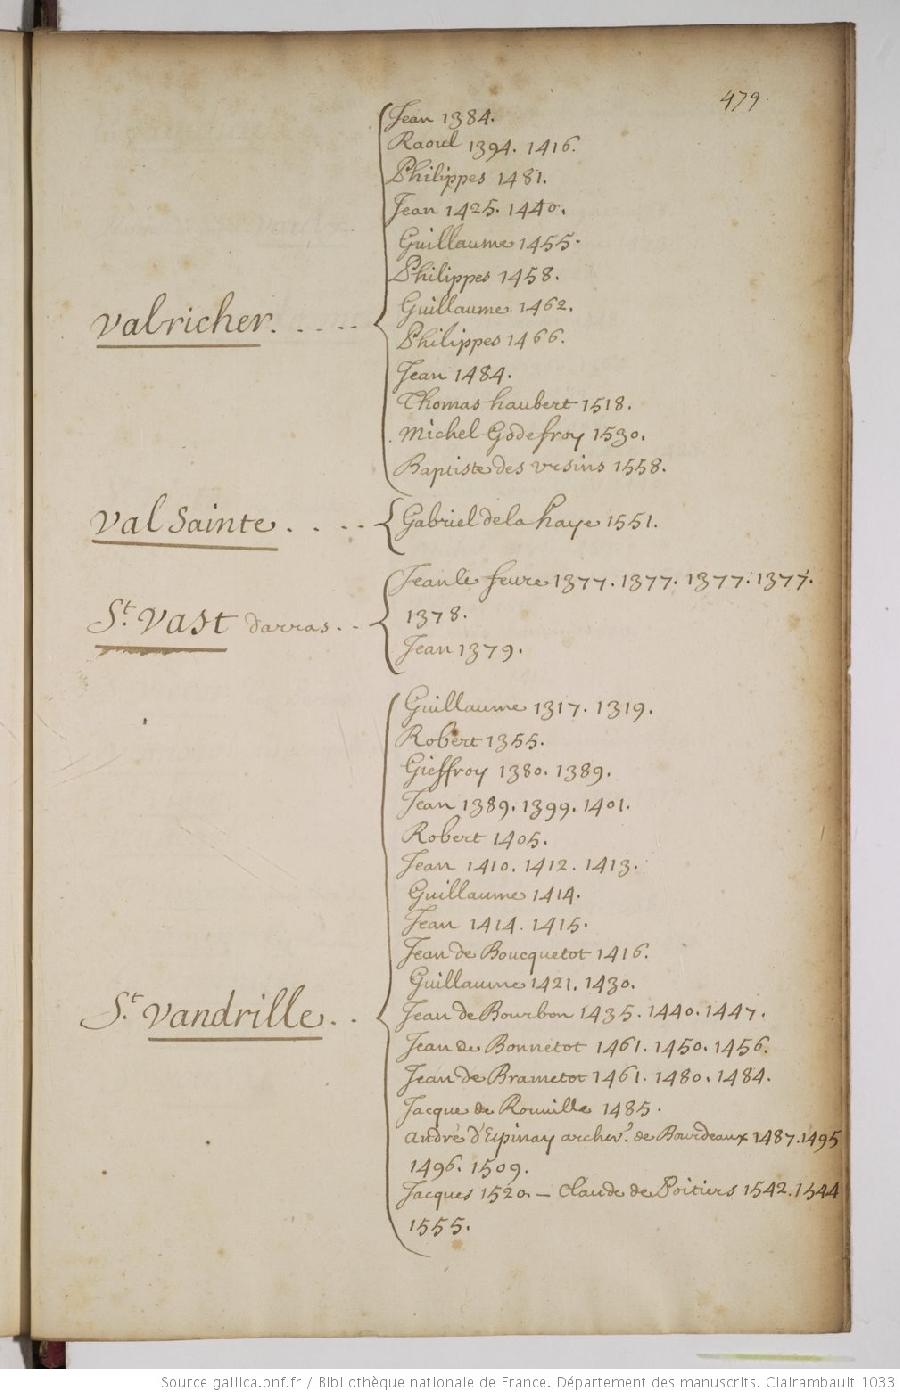 479
Jean 1384.
Raoul 1394. 1416.
Philippes 1481.
Jean 1425. 1440.
Guillaume 1455.
Philippes 1458.
Guillaume 1462.
Valricher. . . . .
Philippes 1466.
Jean 1484.
Thomas haubert 1518.
Michel Godefroy 1530.
Baptiste des Vrsins 1558.
Val Sainte. . . . .
Gabriel de la haye 1551.
Jean le feure 1377. 1377. 1377. 1377.
1378.
St. Vast darras. . .
Jean 1379.
Guillaume 1317. 1319.
Robert 1355.
Gieffroy 1380. 1389.
Jean 1389. 1399. 1401.
Robert 1405.
Jean 1410. 1412. 1413.
Guillaume 1414.
Jean 1414. 1415.
Jean de Boucquetot 1416.
Guillaume 1421. 1430.
St. Vandrille. . .
Jean de Bourbon 1435. 1440. 1447.
Jean de Bonnetot 1461. 1450. 1456.
Jean de Brametot 1461. 1480. 1484.
Jacque de Rouuille 1485.
André d'Espinay archev.e de Bourdeaux 1487. 1495
1496. 1509.
Jacques 1520. — Claude de Poitiers 1542. 1544
1555.
Source gallica.bnf.fr / Bibliothèque nationale de France. Département des manuscrits. Clairambault 1033